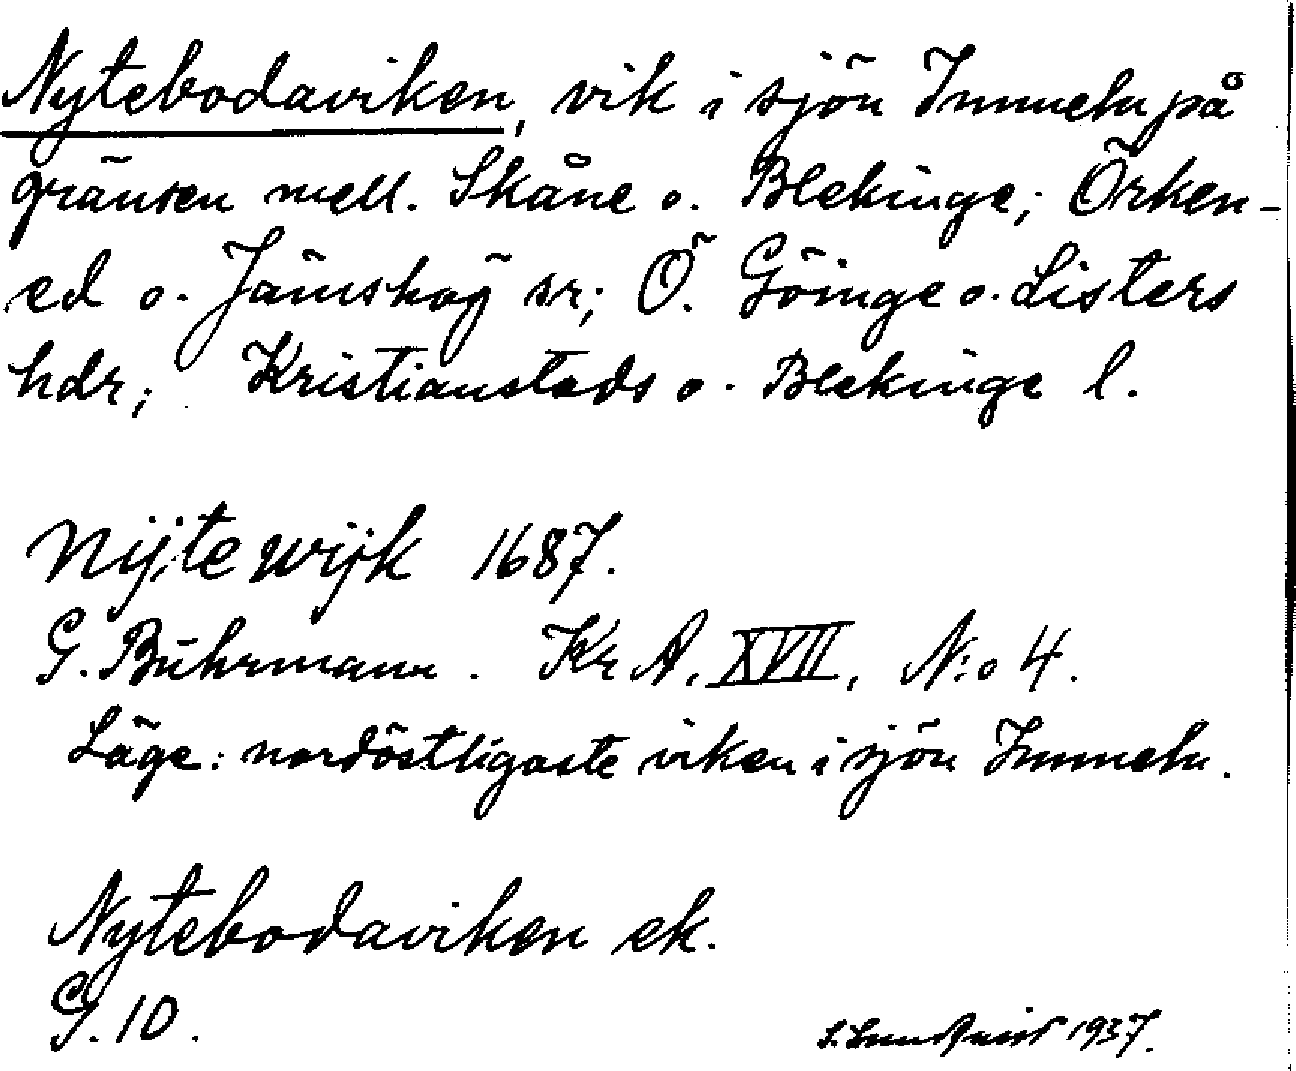 Nytebodaviken, vik i sjön Immeln på
gränsen mell. Skåne o. Blekinge; Örken-
ed o. Jämshög sr; Ö. Göinge o. Listers
hdr; Kristianstads o. Blekinge l.
Nijte wijk 1687.
G. Buhrmann. Kr A. XVII, N:o 4.
Läge: nordöstligaste viken i sjön Immeln.
Nytebodaviken ek.
G. 10.
S. Lundquist 1937.